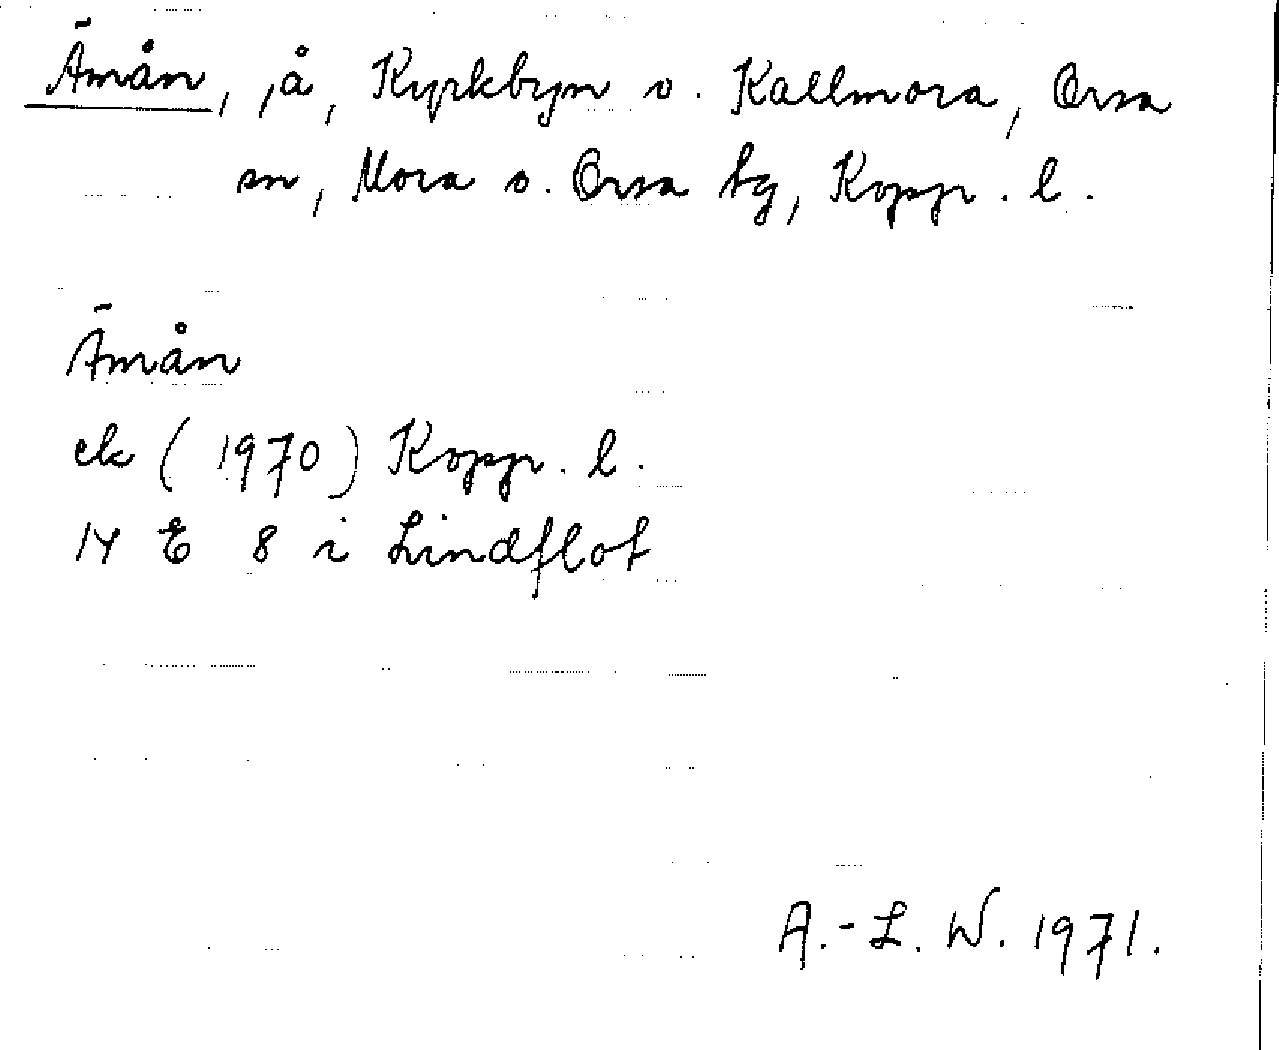 Ämån, ,å, Kyrkbyn o. Kallmora, Orsa
sn, Mora o. Orsa tg, Kopp. l.
Ämån
ek (1970) Kopp. l.
14 E 8 i Lindflot
A.-L. W. 1971.